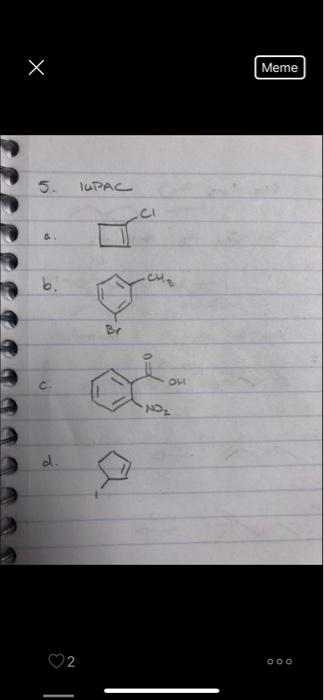 Meme
5. IUPAC
a.
Cl
b.
CH3
Br
c.
O
OH
NO2
d.
I
2